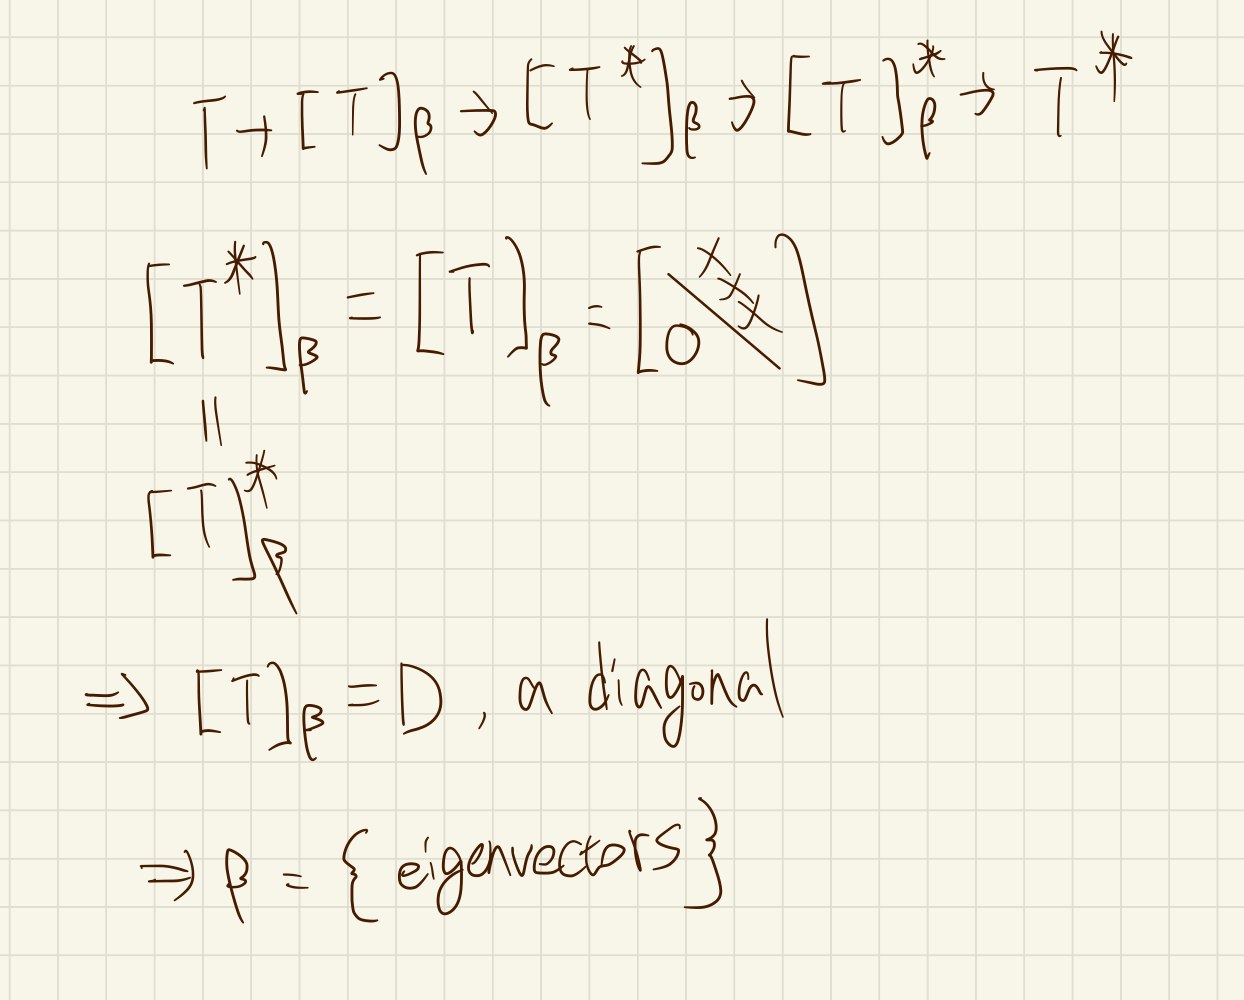 T → [T]β → [T*]β → [T]*β → T*
[T*]β = [T]β = [0 xxx]
||
[T]*β
⇒ [T]β = D, a diagonal
⇒ β = {eigenvectors}